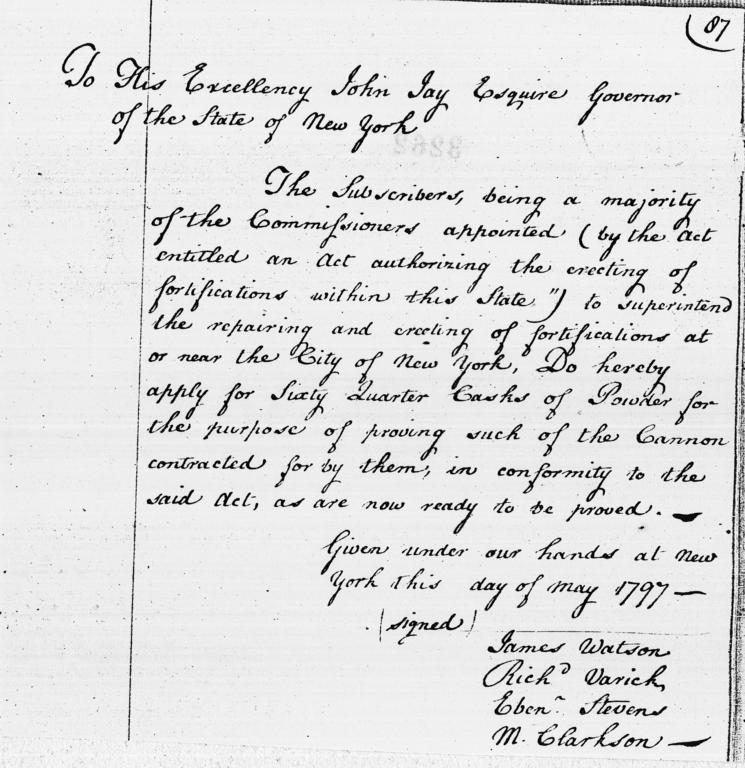 87
To His Excellency John Jay Esquire Governor
of the State of New York
3262
The Subscribers, being a majority
of the Commissioners appointed (by the Act
entitled an Act authorizing the erecting of
fortifications within this State") to superintend
the repairing and erecting of fortifications at
or near the City of New York, Do hereby
apply for Sixty Quarter Casks of Powder for
the purpose of proving such of the Cannon
contracted for by them, in conformity to the
said Act, as are now ready to be proved. —
Given under our hands at New
York this day of May 1797 —
(signed)
James Watson
Richd Varick
Ebenr Stevens
M. Clarkson —